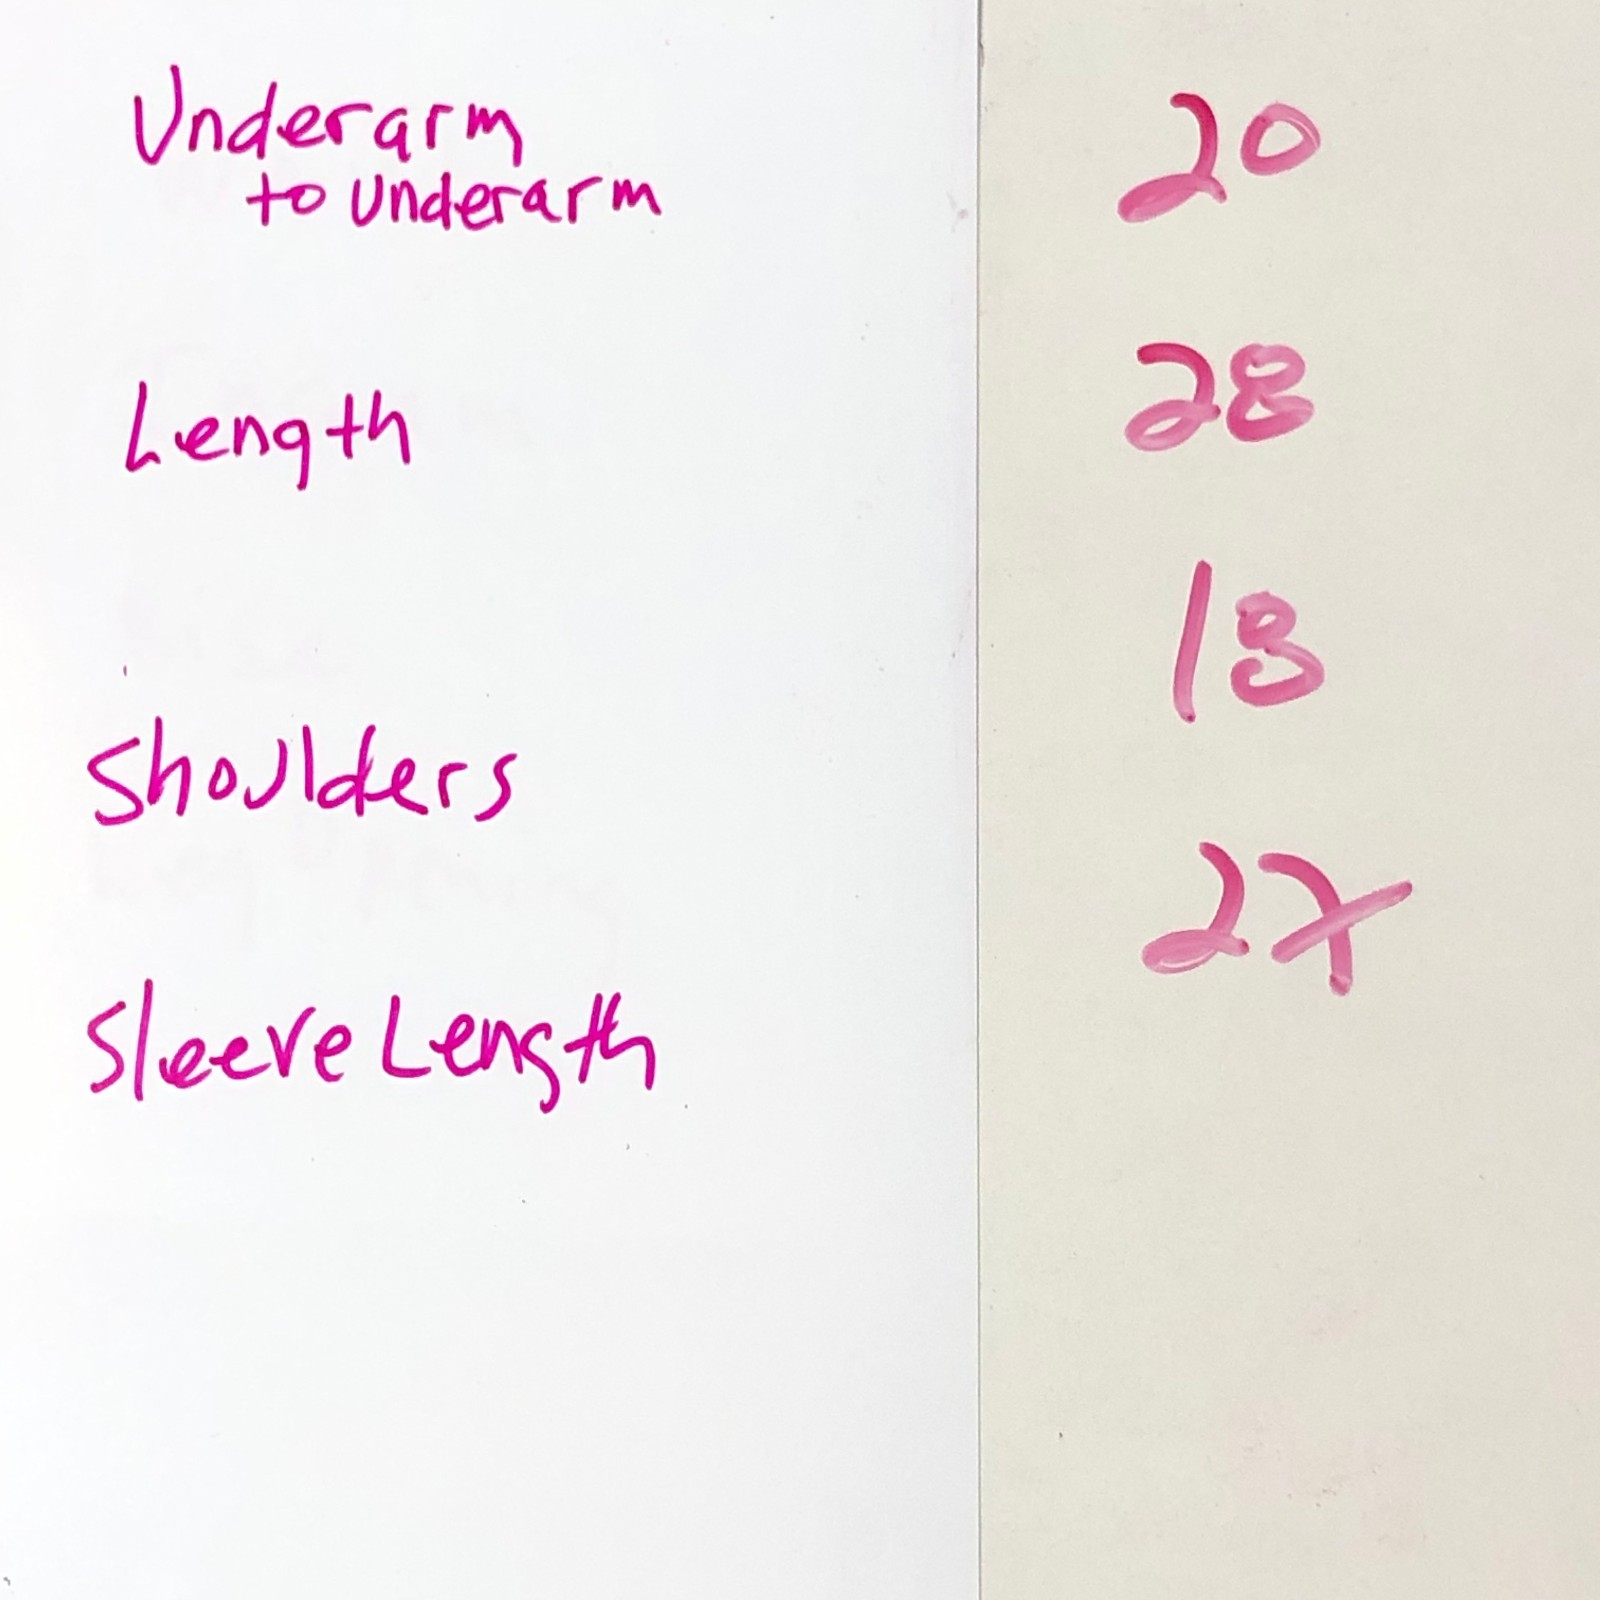 Underarm 20
to Underarm
Length 28
Shoulders 18
Sleeve Length 27